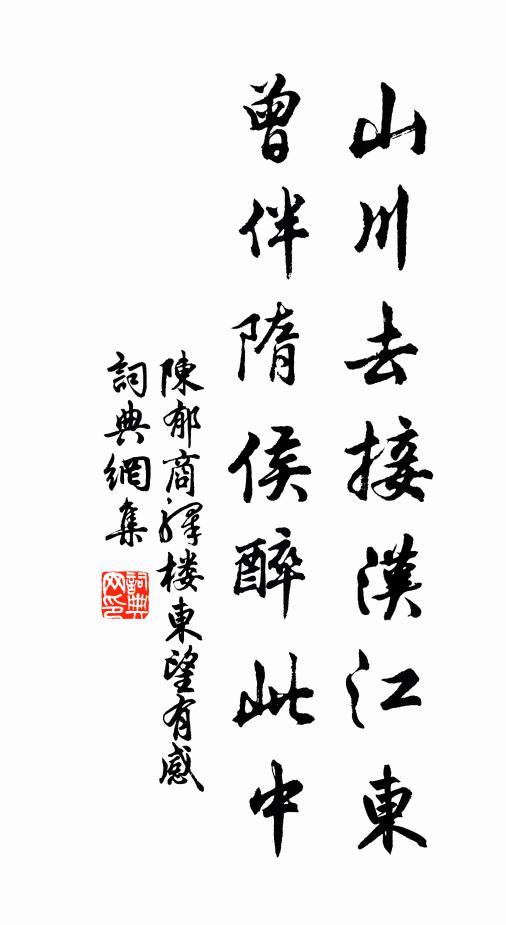 山川去接漢江東
曾伴隋侯醉此中
陳郁商驛楼東望有感
詞典網集
詞典网印